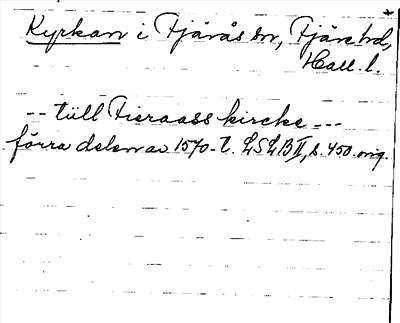 Kyrkan i Fjärås sn, Fjäre hd,
Hall. l.
-- till Fieraass kircke ---
förra delen av 1570-t. LSLB II, s. 450. orig.